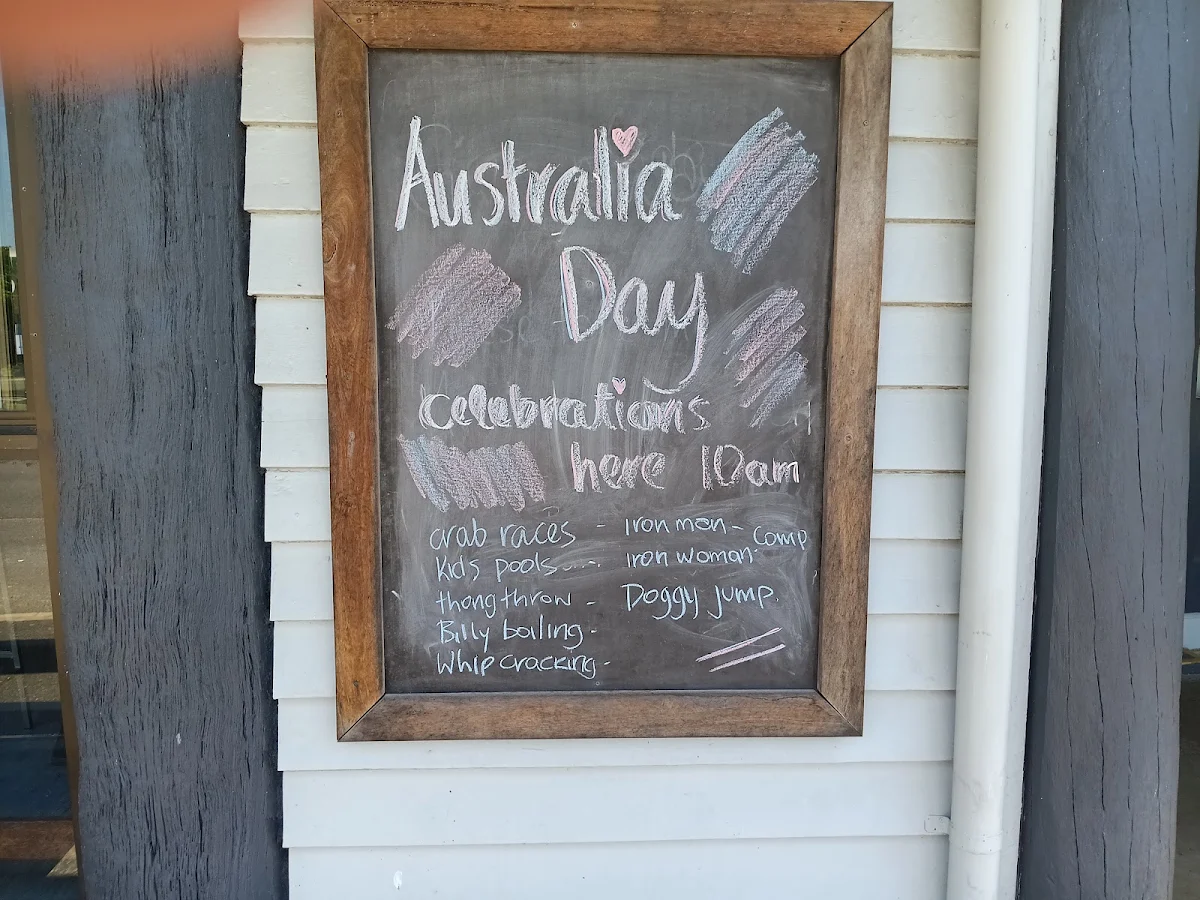 Australia
Day
celebrations
here 10am
crab races - Iron man - Comp
Kids pools..... Iron woman
thong throw - Doggy Jump.
Billy boiling -
Whip cracking -